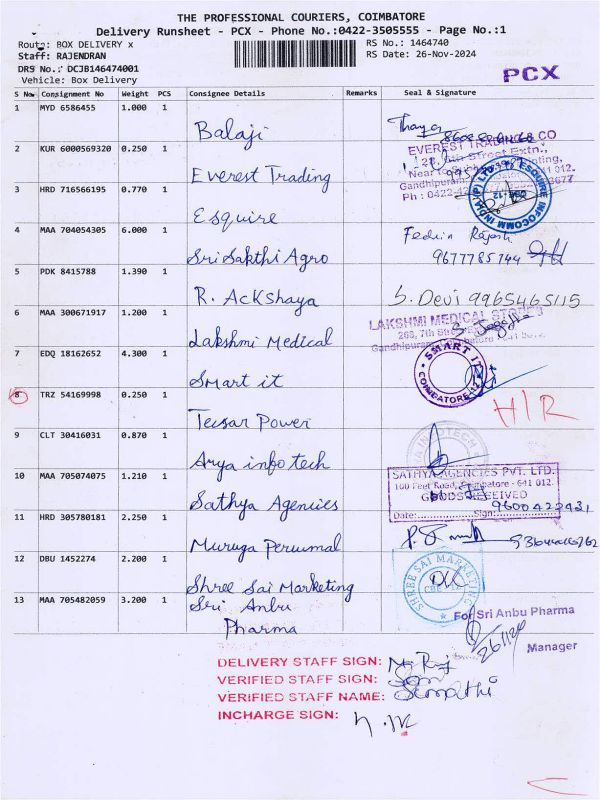 THE PROFESSIONAL COURIERS, COIMBATORE
Delivery Runsheet - PCX - Phone No.:0422-3505555 - Page No.:1
Route: BOX DELIVERY x
RS No.: 1464740
Staff: RAJENDRAN
RS Date: 26-Nov-2024
DRS No.: DCJB146474001
Vehicle: Box Delivery
PCX
S No Consignment No Weight PCS Consignee Details Remarks Seal & Signature
1 MYD 6586455 1.000 1 Balaji
2 KUR 6000569320 0.250 1 Everest Trading
EVEREST TRADING & CO
3 HRD 716566195 0.770 1 Esquire
ESQUIRE INFOCOMM INDIA
4 MAA 704054305 6.000 1 Sri Sakthi Agro
9677785744
5 PDK 8415788 1.390 1 R. Ackshaya S. Devi 9965465115
6 MAA 300671917 1.200 1 Lakshmi Medical
LAKSHMI MEDICAL STORES
7 EDQ 18162652 4.300 1 Smart it
SMART IT
COIMBATORE-12
8 TRZ 54169998 0.250 1 Tecsar Power H/R
9 CLT 30416031 0.870 1 Arya info tech
10 MAA 705074075 1.210 1 Sathya Agencies
SATHYA AGENCIES PVT. LTD.
100 Feet Road, Coimbatore - 641 012.
GOODS RECEIVED
Date: Sign:
9600422431
11 HRD 305780181 2.250 1 Muruga Perumal
12 DBU 1452274 2.200 1 Shree Sai Marketing
SHREE SAI MARKETING
13 MAA 705482059 3.200 1 Sri Anbu
Pharma
For Sri Anbu Pharma
Manager
DELIVERY STAFF SIGN:
VERIFIED STAFF SIGN:
VERIFIED STAFF NAME:
INCHARGE SIGN: